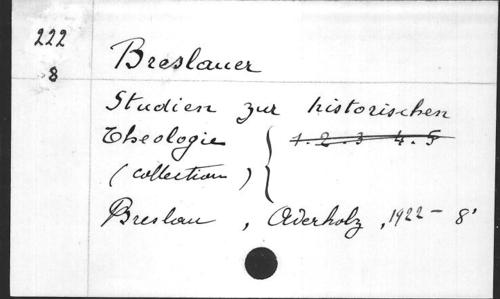 222
8
Breslauer
Studien zur historischen
Theologie { 1. 2. 3 4. 5
(collection)
Breslau, Aderholz, 1922 - 8°